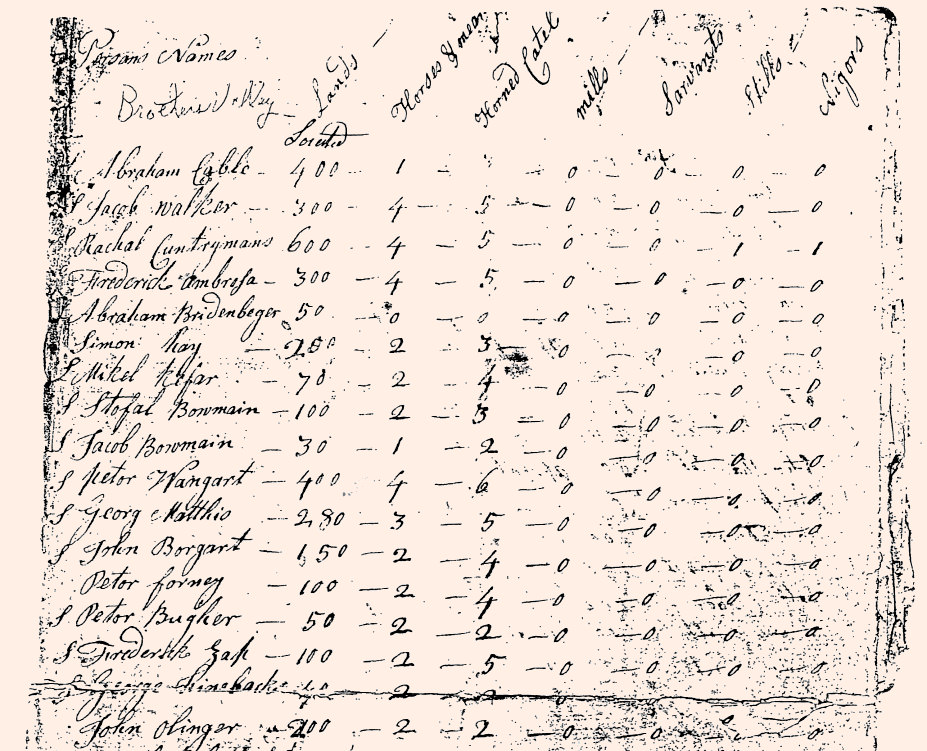 Persons Names Lands Horses & mears Horned Catel mills Sarvants Stills Nigors
Brothers Vally
Located
Abraham Cable - 400 - 1 - - 0 - 0 - 0 - 0
S Jacob walker - 300 - 4 - 5 - 0 - 0 - 0 - 0
S Rachal Cuntrymans 600 - 4 - 5 - 0 - 0 - 1 - 1
Frederick ambrosa - 300 - 4 - 5 - 0 - 0 - 0 - 0
Abraham Bridenbeger 50 - 0 - 0 - 0 - 0 - 0 - 0
Simon hay - 250 - 2 - 3 - 0 - 0 - 0 - 0
S Mikel kefar - 70 - 2 - 4 - 0 - 0 - 0 - 0
S Stofal Bowmain - 100 - 2 - 3 - 0 - 0 - 0 - 0
S Jacob Bowmain - 30 - 1 - 2 - 0 - 0 - 0 - 0
S petor Wangart - 400 - 4 - 6 - 0 - 0 - 0 - 0
S Georg Matthis - 280 - 3 - 5 - 0 - 0 - 0 - 0
S John Borgart - 150 - 2 - 4 - 0 - 0 - 0 - 0
Petor forney - 100 - 2 - 4 - 0 - 0 - 0 - 0
S Petor Bugher - 50 - 2 - 2 - 0 - 0 - 0 - 0
S Firedersk Zaft - 100 - 2 - 5 - 0 - 0 - 0 - 0
S George 2 2
John Olinger - 200 - 2 - 2 - 0 - 0 - 0 - 0